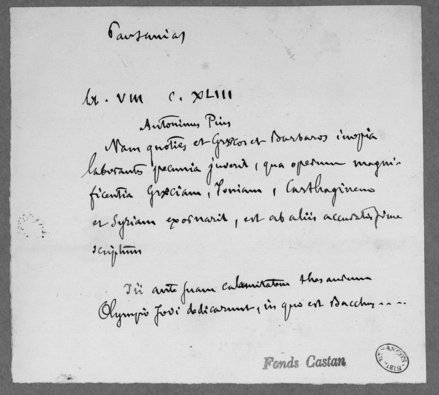 Pausanias
lib. VIII c. XLIII
Antoninus Pius
Nam quoties et Græcos et Barbaros inopia
laborantes pecunia juverit, qua operum magni-
ficentia Græciam, Ioniam, Carthaginem
et Syriam exornarit, est ab aliis accuratissime
scriptum
ante suam calamitatem thesaurum
Olympio Jovi dedicarunt, in quo est Bacchus ....
Fonds Castan